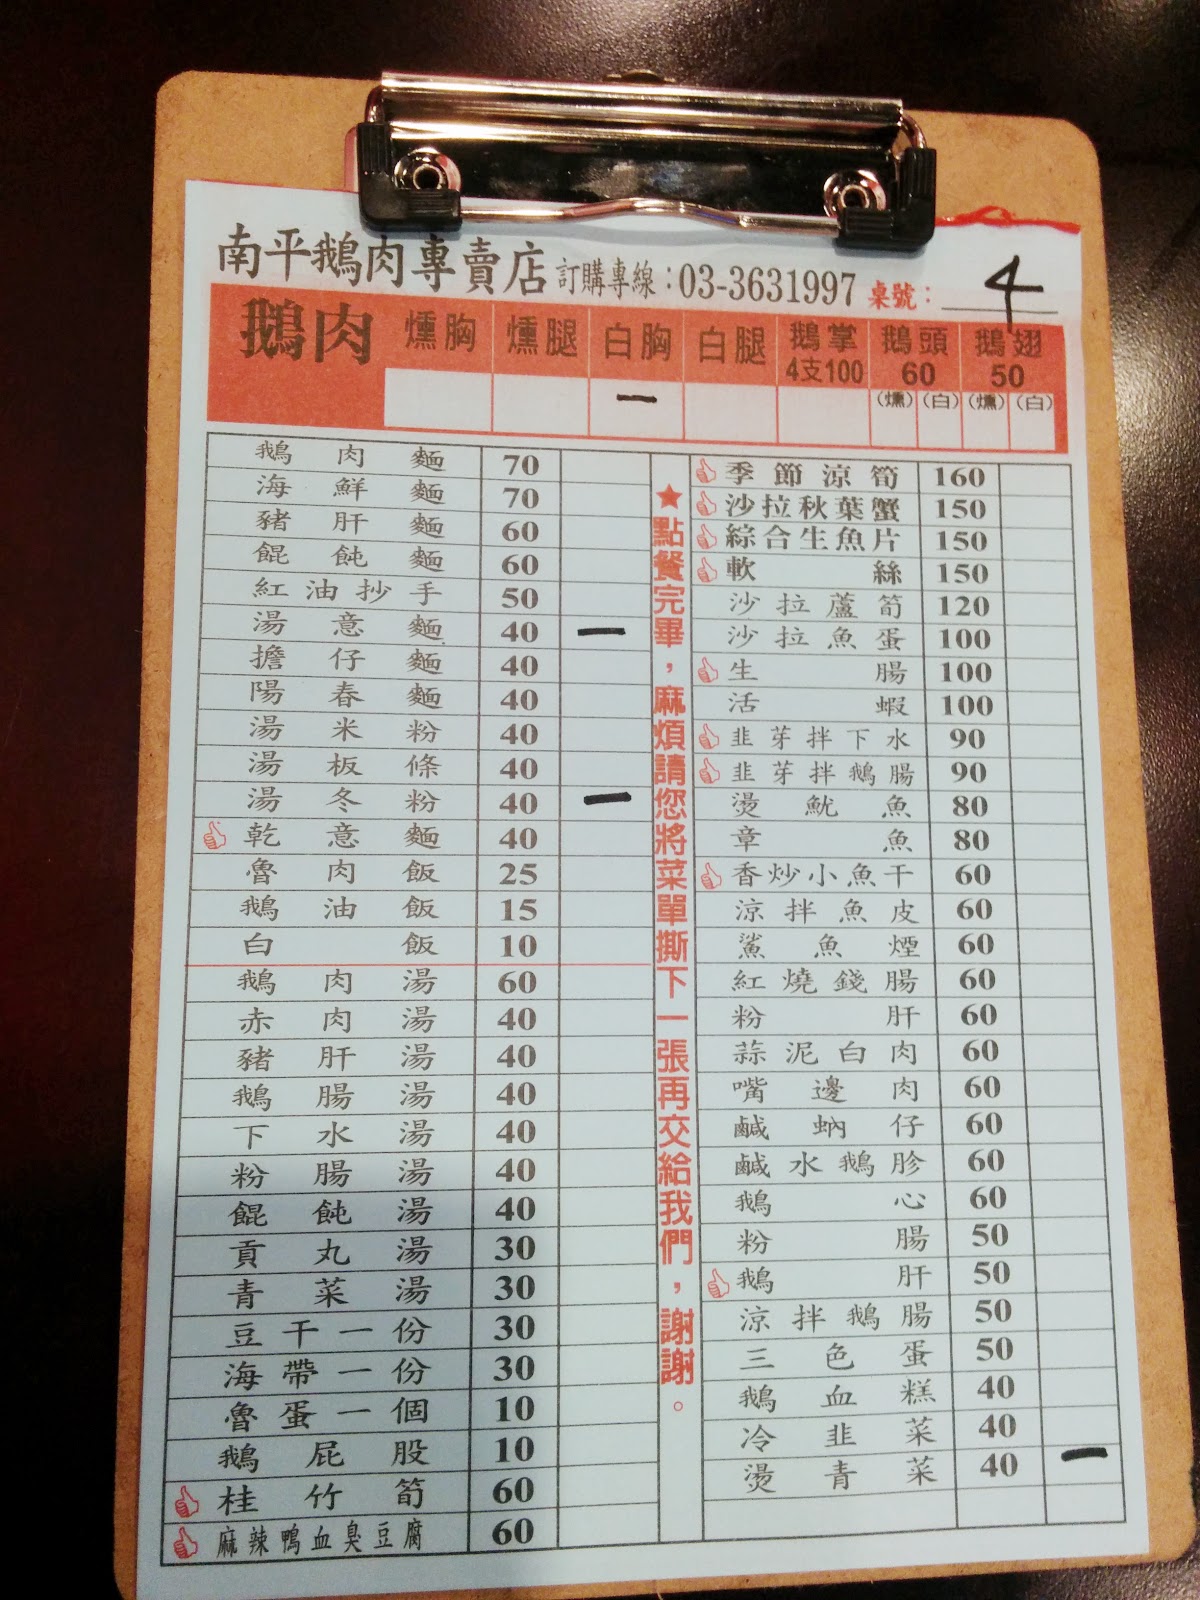 南平鵝肉專賣店 訂購專線：03-3631997 桌號： 4
鵝肉 燻胸 燻腿 白胸 白腿 鵝掌 4支100 鵝頭 60 鵝翅 50
(燻) (白) (燻) (白)
一
鵝肉麵 70
海鮮麵 70
豬肝麵 60
餛飩麵 60
紅油抄手 50
湯意麵 40 一
擔仔麵 40
陽春麵 40
湯米粉 40
湯板條 40
湯冬粉 40 一
乾意麵 40
魯肉飯 25
鵝油飯 15
白飯 10
鵝肉湯 60
赤肉湯 40
豬肝湯 40
鵝腸湯 40
下水湯 40
粉腸湯 40
餛飩湯 40
貢丸湯 30
青菜湯 30
豆干一份 30
海帶一份 30
魯蛋一個 10
鵝屁股 10
桂竹筍 60
麻辣鴨血臭豆腐 60
★點餐完畢，麻煩請您將菜單撕下一張再交給我們，謝謝。
季節涼筍 160
沙拉秋葉蟹 150
綜合生魚片 150
軟絲 150
沙拉蘆筍 120
沙拉魚蛋 100
生腸 100
活蝦 100
韭芽拌下水 90
韭芽拌鵝腸 90
燙魷魚 80
章魚 80
香炒小魚干 60
涼拌魚皮 60
鯊魚煙 60
紅燒錢腸 60
粉肝 60
蒜泥白肉 60
嘴邊肉 60
鹹蚋仔 60
鹹水鵝胗 60
鵝心 60
粉腸 50
鵝肝 50
涼拌鵝腸 50
三色蛋 50
鵝血糕 40
冷韭菜 40
燙青菜 40 一